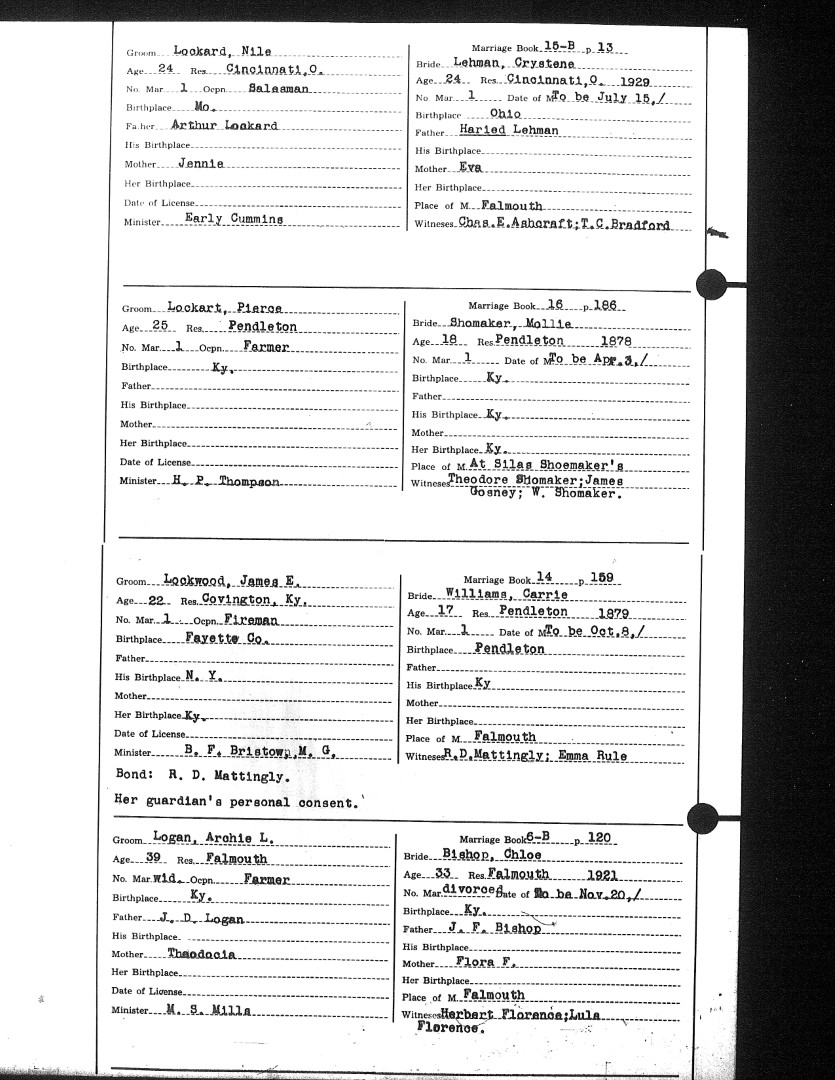 Groom Lockard, Nile
Age 24 Res. Cincinnati,O.
No. Mar. 1 Ocpn. Salesman
Birthplace Mo.
Father Arthur Lockard
His Birthplace
Mother Jennie
Her Birthplace
Date of License
Minister Early Cummins
Marriage Book 15-B p. 13
Bride Lehman, Crystene
Age 24 Res. Cincinnati,O. 1929
No. Mar. 1 Date of M. To be July 15,/
Birthplace Ohio
Father Haried Lehman
His Birthplace
Mother Eva
Her Birthplace
Place of M. Falmouth
Witneses Chas.E.Ashcraft;T.C.Bradford
Groom Lockart, Pierce
Age 25 Res. Pendleton
No. Mar. 1 Ocpn. Farmer
Birthplace Ky.
Father
His Birthplace
Mother
Her Birthplace
Date of License
Minister H. P. Thompson
Marriage Book 16 p. 186
Bride Shomaker, Mollie
Age 18 Res. Pendleton 1878
No. Mar. 1 Date of M. To be Apr.3,/
Birthplace Ky.
Father
His Birthplace Ky.
Mother
Her Birthplace Ky.
Place of M. At Silas Shoemaker's
Witneses Theodore Shomaker;James
Gosney; W. Shomaker.
Groom Lockwood, James E.
Age 22 Res. Covington, Ky.
No. Mar. 1 Ocpn. Fireman
Birthplace Fayette Co.
Father
His Birthplace N. Y.
Mother
Her Birthplace Ky.
Date of License
Minister B. F. Bristown,M. G.
Bond: R. D. Mattingly.
Her guardian's personal consent.
Marriage Book 14 p. 159
Bride Williams, Carrie
Age 17 Res. Pendleton 1879
No. Mar. 1 Date of M. To be Oct.8,/
Birthplace Pendleton
Father
His Birthplace Ky
Mother
Her Birthplace
Place of M. Falmouth
Witneses R.D.Mattingly; Emma Rule
Groom Logan, Archie L.
Age 39 Res. Falmouth
No. Mar. wid. Ocpn. Farmer
Birthplace Ky.
Father J. D. Logan
His Birthplace
Mother Theodocia
Her Birthplace
Date of License
Minister M. S. Mills
Marriage Book 6-B p. 120
Bride Bishop, Chloe
Age 33 Res. Falmouth 1921
No. Mar. divorced Date of M. To be Nov.20,/
Birthplace Ky.
Father J. F. Bishop
His Birthplace
Mother Flora F.
Her Birthplace
Place of M. Falmouth
Witneses Herbert Florence;Lula
Florence.